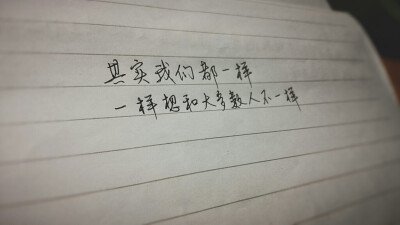 其实我们都一样
一样想和大多数人不一样